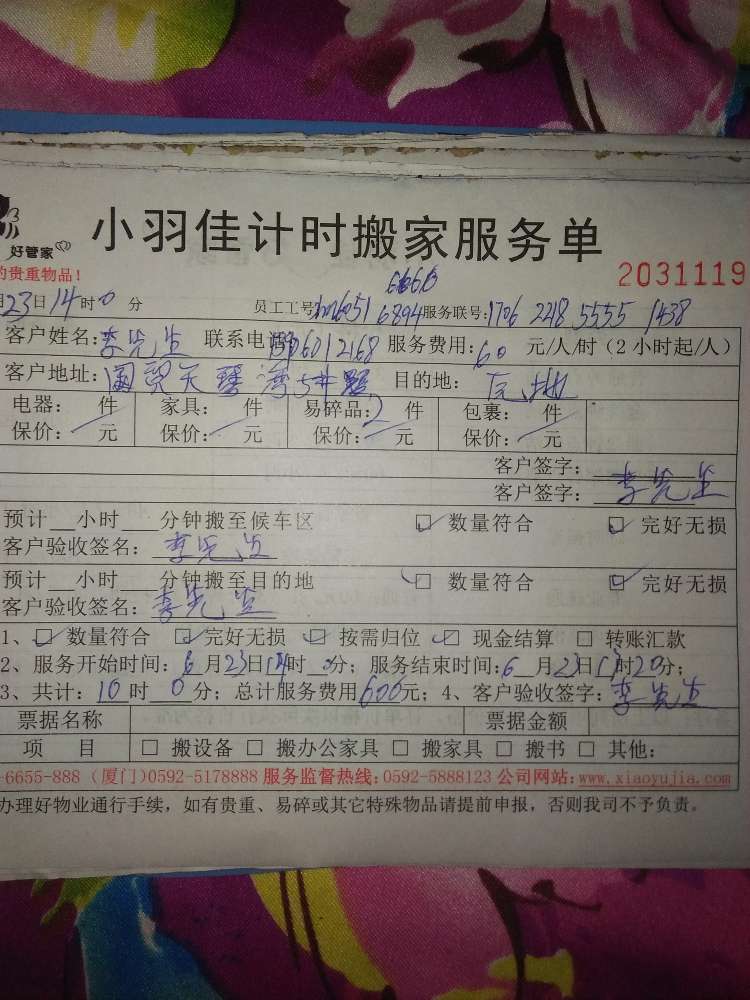 好管家
小羽佳计时搬家服务单
的贵重物品!
2031119
23日14时0分 员工工号: 6894 服务联号:1706 2218 5555 1438
客户姓名:李先生 联系电话: 服务费用:60元/人/时(2小时起/人)
客户地址: 目的地:
电器: 件 家具: 件 易碎品:2件 包裹: 件
保价: 元 保价: 元 保价: 元 保价: 元
客户签字:
客户签字:李先生
预计__小时___分钟搬至候车区 ☑ 数量符合 ☑ 完好无损
客户验收签名:李先生
预计__小时___分钟搬至目的地 ☑ 数量符合 ☑ 完好无损
客户验收签名:李先生
1、☑ 数量符合 ☑ 完好无损 ☑ 按需归位 ☑ 现金结算 □ 转账汇款
2、服务开始时间:6月23日14时0分;服务结束时间:6月23日 时20分;
3、共计:10时0分;总计服务费用600元;4、客户验收签字:李先生
票据名称 票据金额
项 目 □ 搬设备 □ 搬办公家具 □ 搬家具 □ 搬书 □ 其他:
-6655-888 (厦门)0592-5178888 服务监督热线:0592-5888123 公司网站:www.xiaoyujia.com
办理好物业通行手续,如有贵重、易碎或其它特殊物品请提前申报,否则我司不予负责。